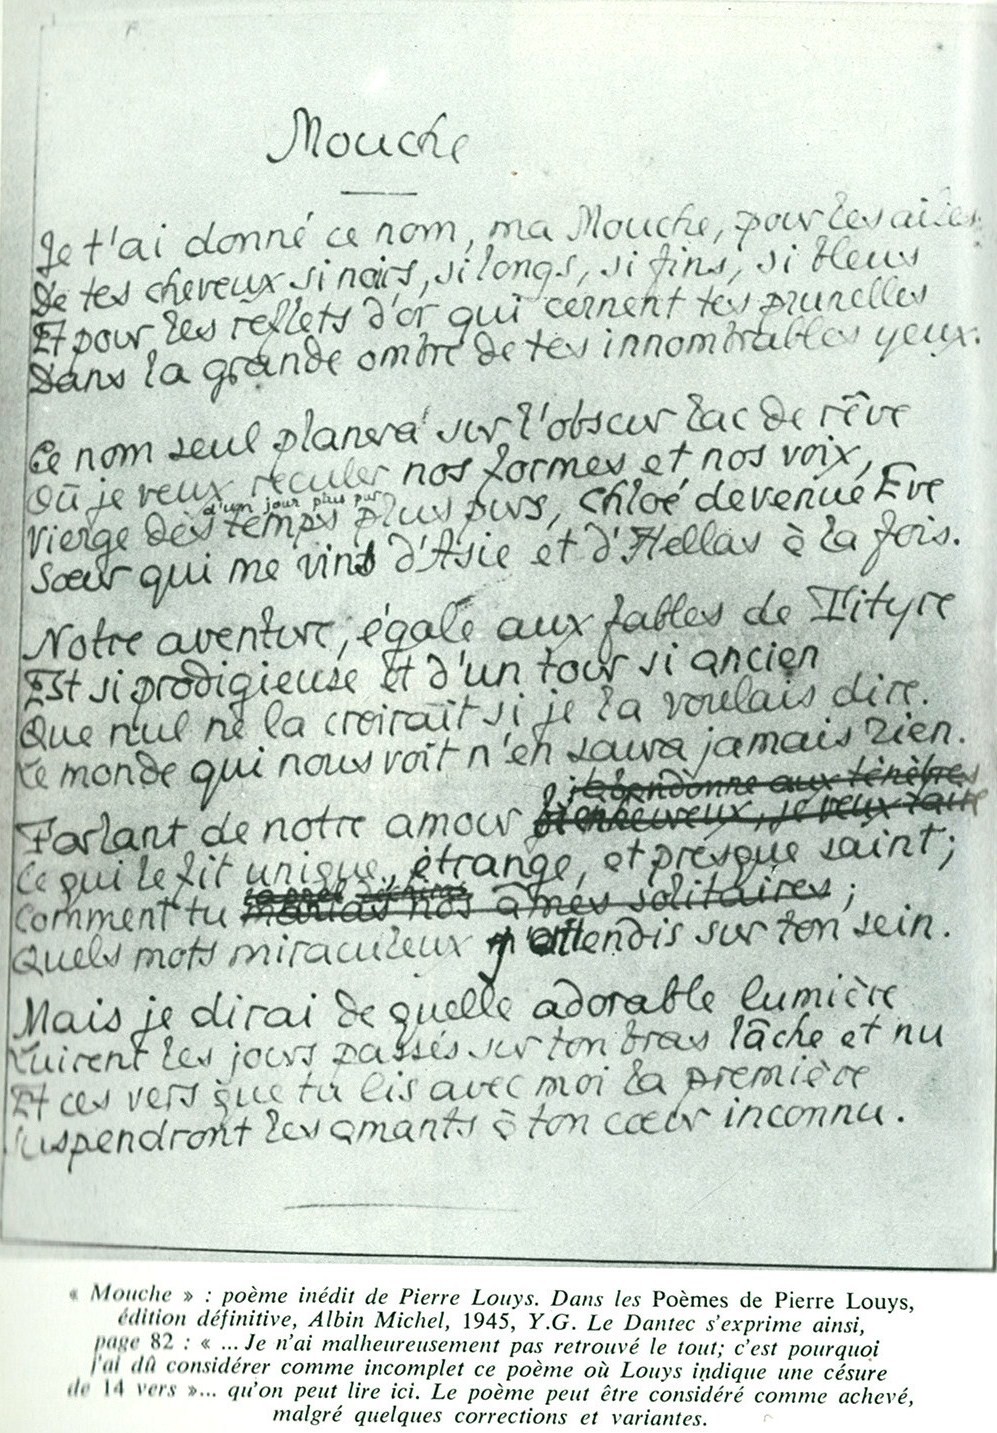 Mouche
Je t'ai donné ce nom, ma Mouche, pour les ailes
De tes cheveux si noirs, si longs, si fins, si bleus
Et pour les reflets d'or qui cernent tes prunelles
Dans la grande ombre de tes innombrables yeux.
Ce nom seul planera sur l'obscur lac de rêve
Où je veux reculer nos formes et nos voix,
d'un jour plus pur
Vierge des temps plus purs, Chloé devenue Eve
Sœur qui me vins d'Asie et d'Hellas à la fois.
Notre aventure, égale aux fables de Tityre
Est si prodigieuse et d'un tour si ancien
Que nul ne la croirait si je la voulais dire.
Le monde qui nous voit n'en saura jamais rien.
j'abandonne aux ténèbres
Parlant de notre amour bienheureux, je veux taire
Ce qui le fit unique, étrange, et presque saint;
Comment tu marias nos âmes solitaires ;
Quels mots miraculeux j'entendis sur ton sein.
Mais je dirai de quelle adorable lumière
Luirent les jours passés sur ton bras lâche et nu
Et ces vers que tu lis avec moi la première
Suspendront les amants à ton cœur inconnu.
« Mouche » : poème inédit de Pierre Louys. Dans les Poèmes de Pierre Louys,
édition définitive, Albin Michel, 1945, Y.G. Le Dantec s'exprime ainsi,
page 82 : « ... Je n'ai malheureusement pas retrouvé le tout; c'est pourquoi
j'ai dû considérer comme incomplet ce poème où Louys indique une césure
de 14 vers »... qu'on peut lire ici. Le poème peut être considéré comme achevé,
malgré quelques corrections et variantes.